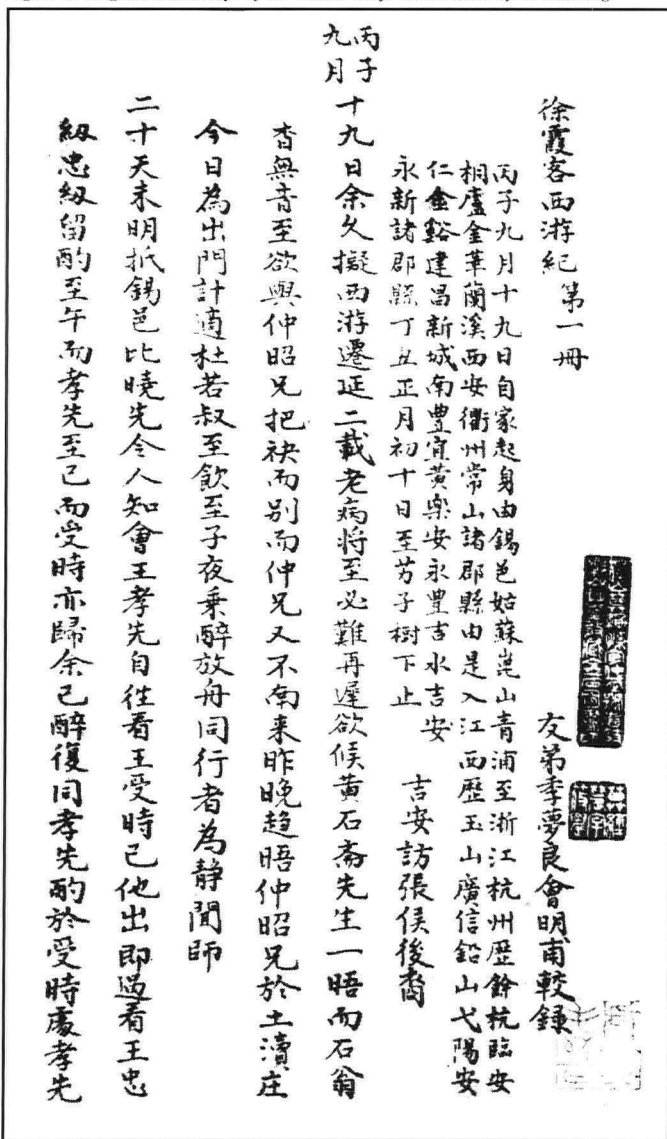 徐霞客西游紀 第一冊
友弟季夢良會明甫較錄
丙子九月十九日自家起身由錫邑姑蘇崑山青浦至浙江杭州歷餘杭臨安
桐廬金華蘭溪西安衢州常山諸郡縣由是入江西歷玉山廣信鉛山弋陽安
仁金谿建昌新城南豐宜黃樂安永豐吉水吉安
永新諸郡縣丁丑正月初十日至艻子樹下止 吉安訪張侯後裔
丙子
九月
十九日余久擬西游遷延二載老病將至必難再遲欲候黃石斋先生一晤而石翁
杳無音至欲與仲昭兄把袂而別而仲兄又不南来昨晚趋晤仲昭兄於土瀆庄
今日為出門計適杜若叔至飲至子夜乗醉放舟同行者為静聞師
二十天未明抵錫邑比曉先令人知會王孝先自往看王受時已他出即過看王忠
紉忠紉留酌至午而孝先至已而受時亦歸余已醉復同孝先酌於受時處孝先